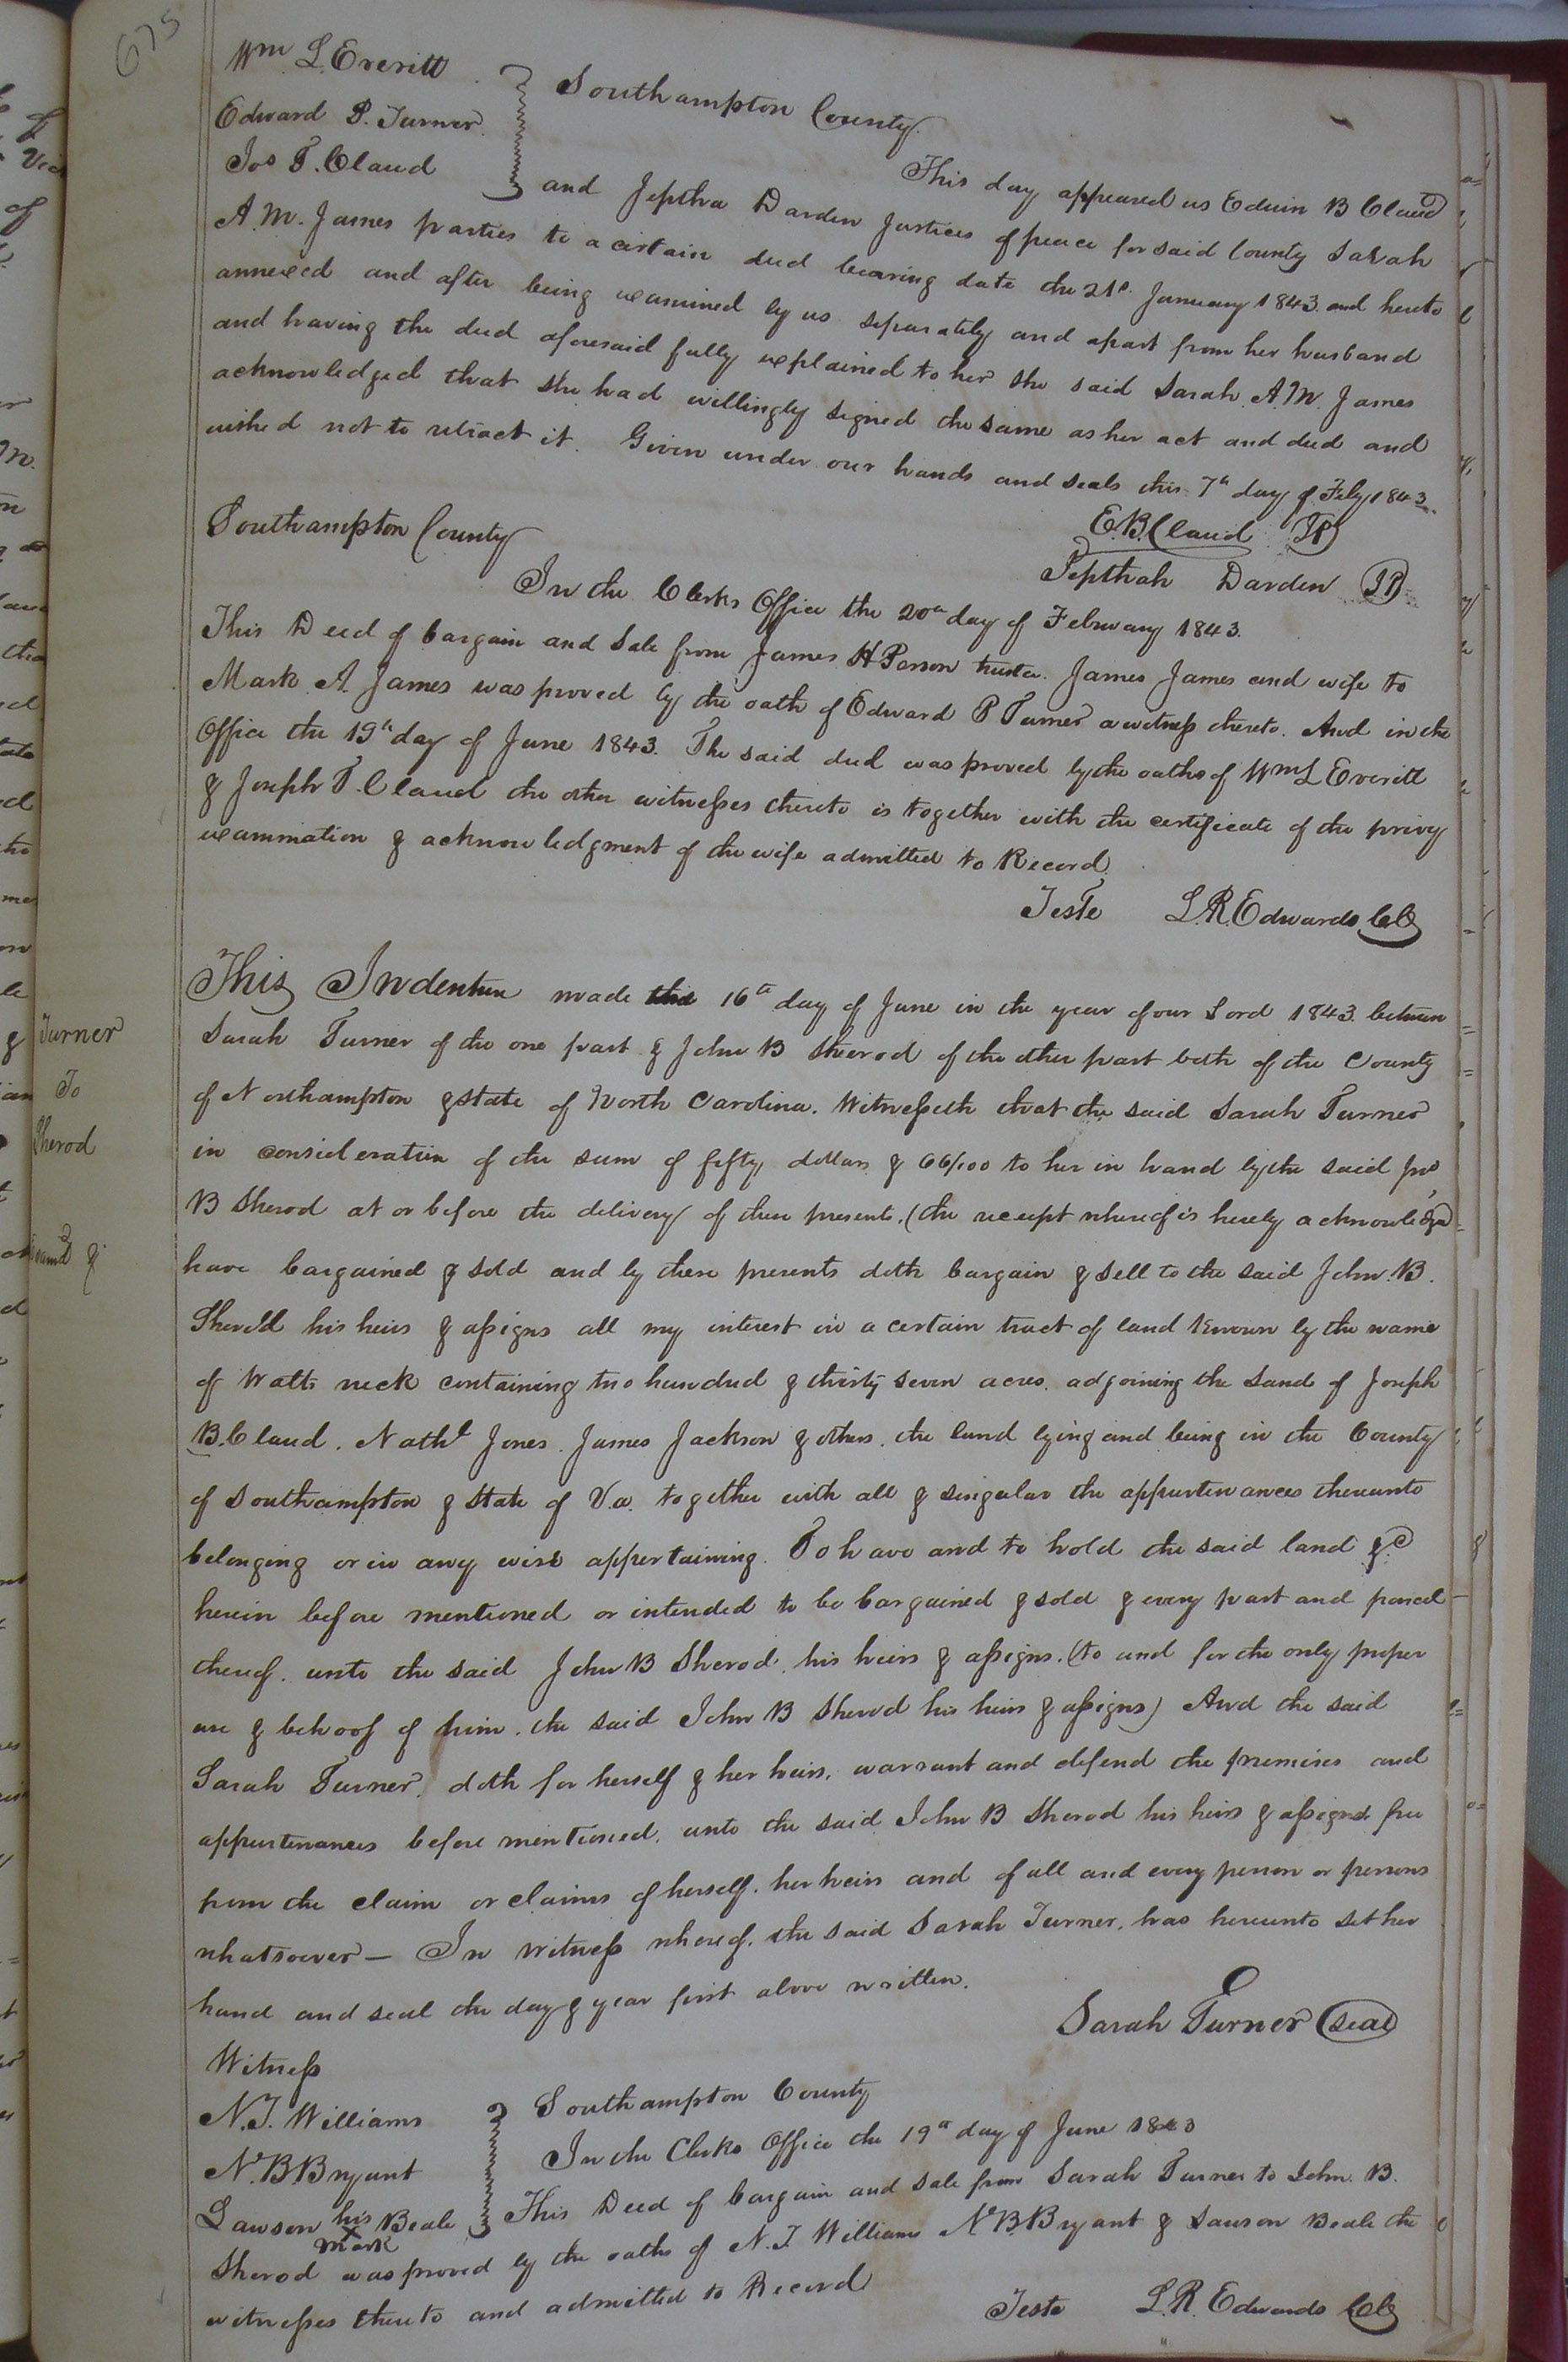 675
Wm L. Everitt
Edward P. Turner
Jos T. Claud
Southampton County
This day appeared us Edwin B Claud
and Jeptha Darden Justices of peace for said County Sarah
A. M. James parties to a certain deed bearing date the 21st January 1843. and hereto
annexed and after being examined by us separately and apart from her husband
and having the deed aforesaid fully explained to her she said Sarah A. M. James
acknowledged that she had willingly signed the same as her act and deed and
wished not to retract it. Given under our hands and seals this 7th day of Feby 1843.
E. B. Claud JP
Jepthah Darden JP
Southampton County
In the Clerks Office the 20th day of February 1843.
This Deed of bargain and Sale from James H Person trustee. James James and wife to
Mark A. James was proved by the oath of Edward P Turner a witness thereto. And in the
Office the 19th day of June 1843. The said deed was proved by the oaths of Wm L Everitt
& Joseph T. Claud the other witnesses thereto is together with the certificate of the privy
examination & acknowledgment of the wife admitted to Record.
Teste L. R. Edwards Clk
Turner
To
Sherod
This Indenture made this 16th day of June in the year of our Lord 1843. between
Sarah Turner of the one part & John B Sherod of the other part both of the County
of Northampton & state of North Carolina. Witnesseth that the said Sarah Turner
in consideration of the sum of fifty dollars & 66/100 to her in hand by the said Jno
B Sherod at or before the delivery of these presents. (the receipt whereof is hereby acknowledged
have bargained & sold and by these presents doth bargain & sell to the said John B.
Sherod his heirs & assigns all my interest in a certain tract of land known by the name
of Watts neck containing two hundred & thirty seven acres. adjoining the Lands of Joseph
B. Claud. Nathl Jones. James Jackson & others. the land lying and being in the County
of Southampton & State of Va. together with all & singular the appurtenances thereunto
belonging or in any wise appertaining. To have and to hold the said land &c
herein before mentioned or intended to be bargained & sold & every part and parcel
thereof. unto the said John B Sherod his heirs & assigns. (to and for the only proper
use & behoof of him. the said John B Sherod his heirs & assigns) And the said
Sarah Turner. doth for herself & her heirs. warrant and defend the premises and
appurtenances before mentioned. unto the said John B Sherod his heirs & assigns free
from the claim or claims of herself. her heirs and of all and every person or persons
whatsoever — In witness whereof. the said Sarah Turner. has hereunto set her
hand and seal the day & year first above written.
Sarah Turner (Seal)
Witness
N. T. Williams
N. B Bryant
Lawson his Beale
x
mark
Southampton County
In the Clerks Office the 19th day of June 1843
This Deed of bargain and sale from Sarah Turner to John B.
Sherod was proved by the oaths of N. T. Williams N. B. Bryant & Lawson Beale the
witnesses thereto and admitted to Record
Teste L. R. Edwards Clk